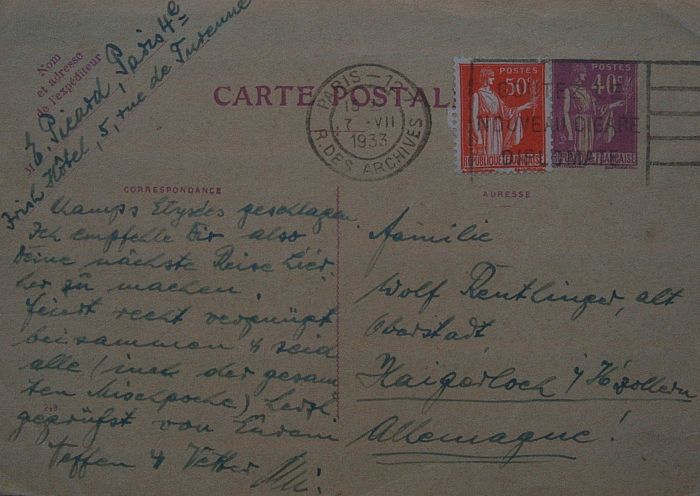 Nom
et adresse
de l'expéditeur
M E. Picard, Paris 4e
Irish Hôtel, 5, rue de Turenne
CARTE POSTALE
PARIS - 12
7 - VII
1933
R. DES ARCHIVES
POSTES
50c
REPUBLIQUE FRANÇAISE
POSTES
40c
REPUBLIQUE FRANÇAISE
NOUVEAU CIGARE
DIPLOMATE
CORRESPONDANCE
Champs Elysées geschlagen
Ich empfehle Dir also
Deine nächste Reise hier-
her zu machen.
Feiert recht vergnügt
beisammen & seid
alle (incl. der gesam-
ten Mischpoche) herzl.
gegrüßt von Eurem
Neffen & Vetter
ADRESSE
Familie
Wolf Reutlinger, alt
Oberstadt,
Haigerloch i/ Hzollern
Allemagne!